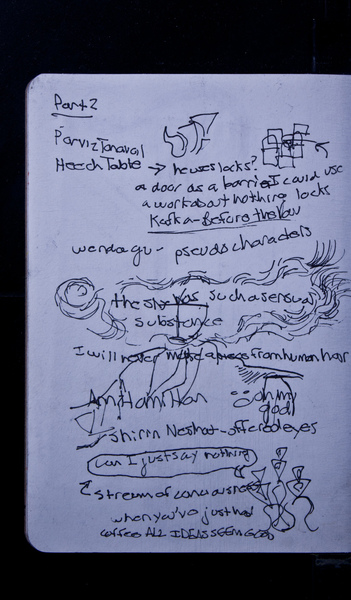 Part 2
Parviz Tanavoli
Heech Table → he uses locks?
a door as a barrier I could use
a work about nothing locks
Kafka-Before the law
wenda gu - pseudo characters
the sky has such a sensual
substance
I will never make a piece from human hair
Ann Hamilton
oh my
god!
Shirin Neshat - offered eyes
can I just say nothing
stream of consciousness
when you've just had
coffee ALL IDEAS SEEM GOOD